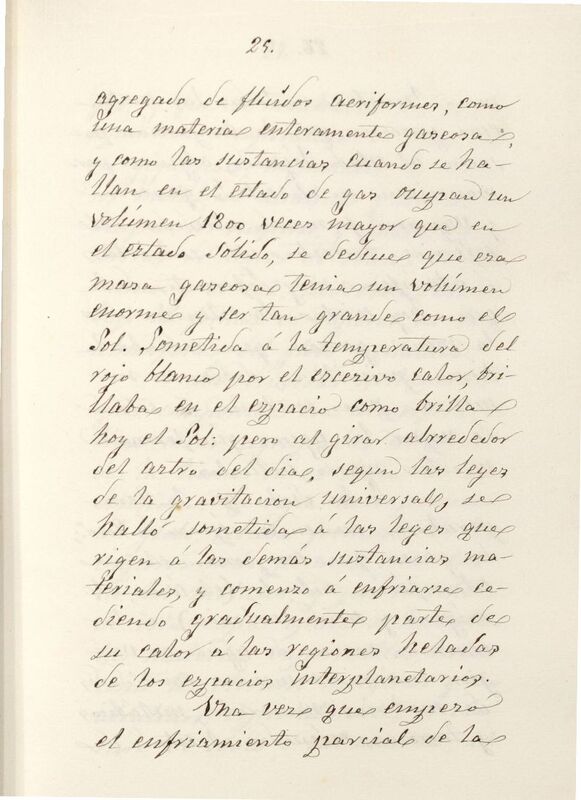 25.
agregado de fluidos aeriformes, como
una materia enteramente gaseosa;
y como las sustancias cuando se ha-
llan en el estado de gas ocupan un
volúmen 1800 veces mayor que en
el estado sólido, se deduce que esa
masa gaseosa tenia un volúmen
enorme y ser tan grande como el
Sol. Sometida á la temperatura del
rojo blanco por el escesivo calor, bri-
llaba en el espacio como brilla
hoy el Sol: pero al girar alrrededor
del astro del dia, segun las leyes
de la gravitacion universal, se
halló sometida á las leyes que
rigen á las demás sustancias ma-
teriales, y comenzo á enfriarse ce-
diendo gradualmente parte de
su calor á las regiones heladas
de los espacios interplanetarios.
Una vez que empezó
el enfriamiento parcial de la